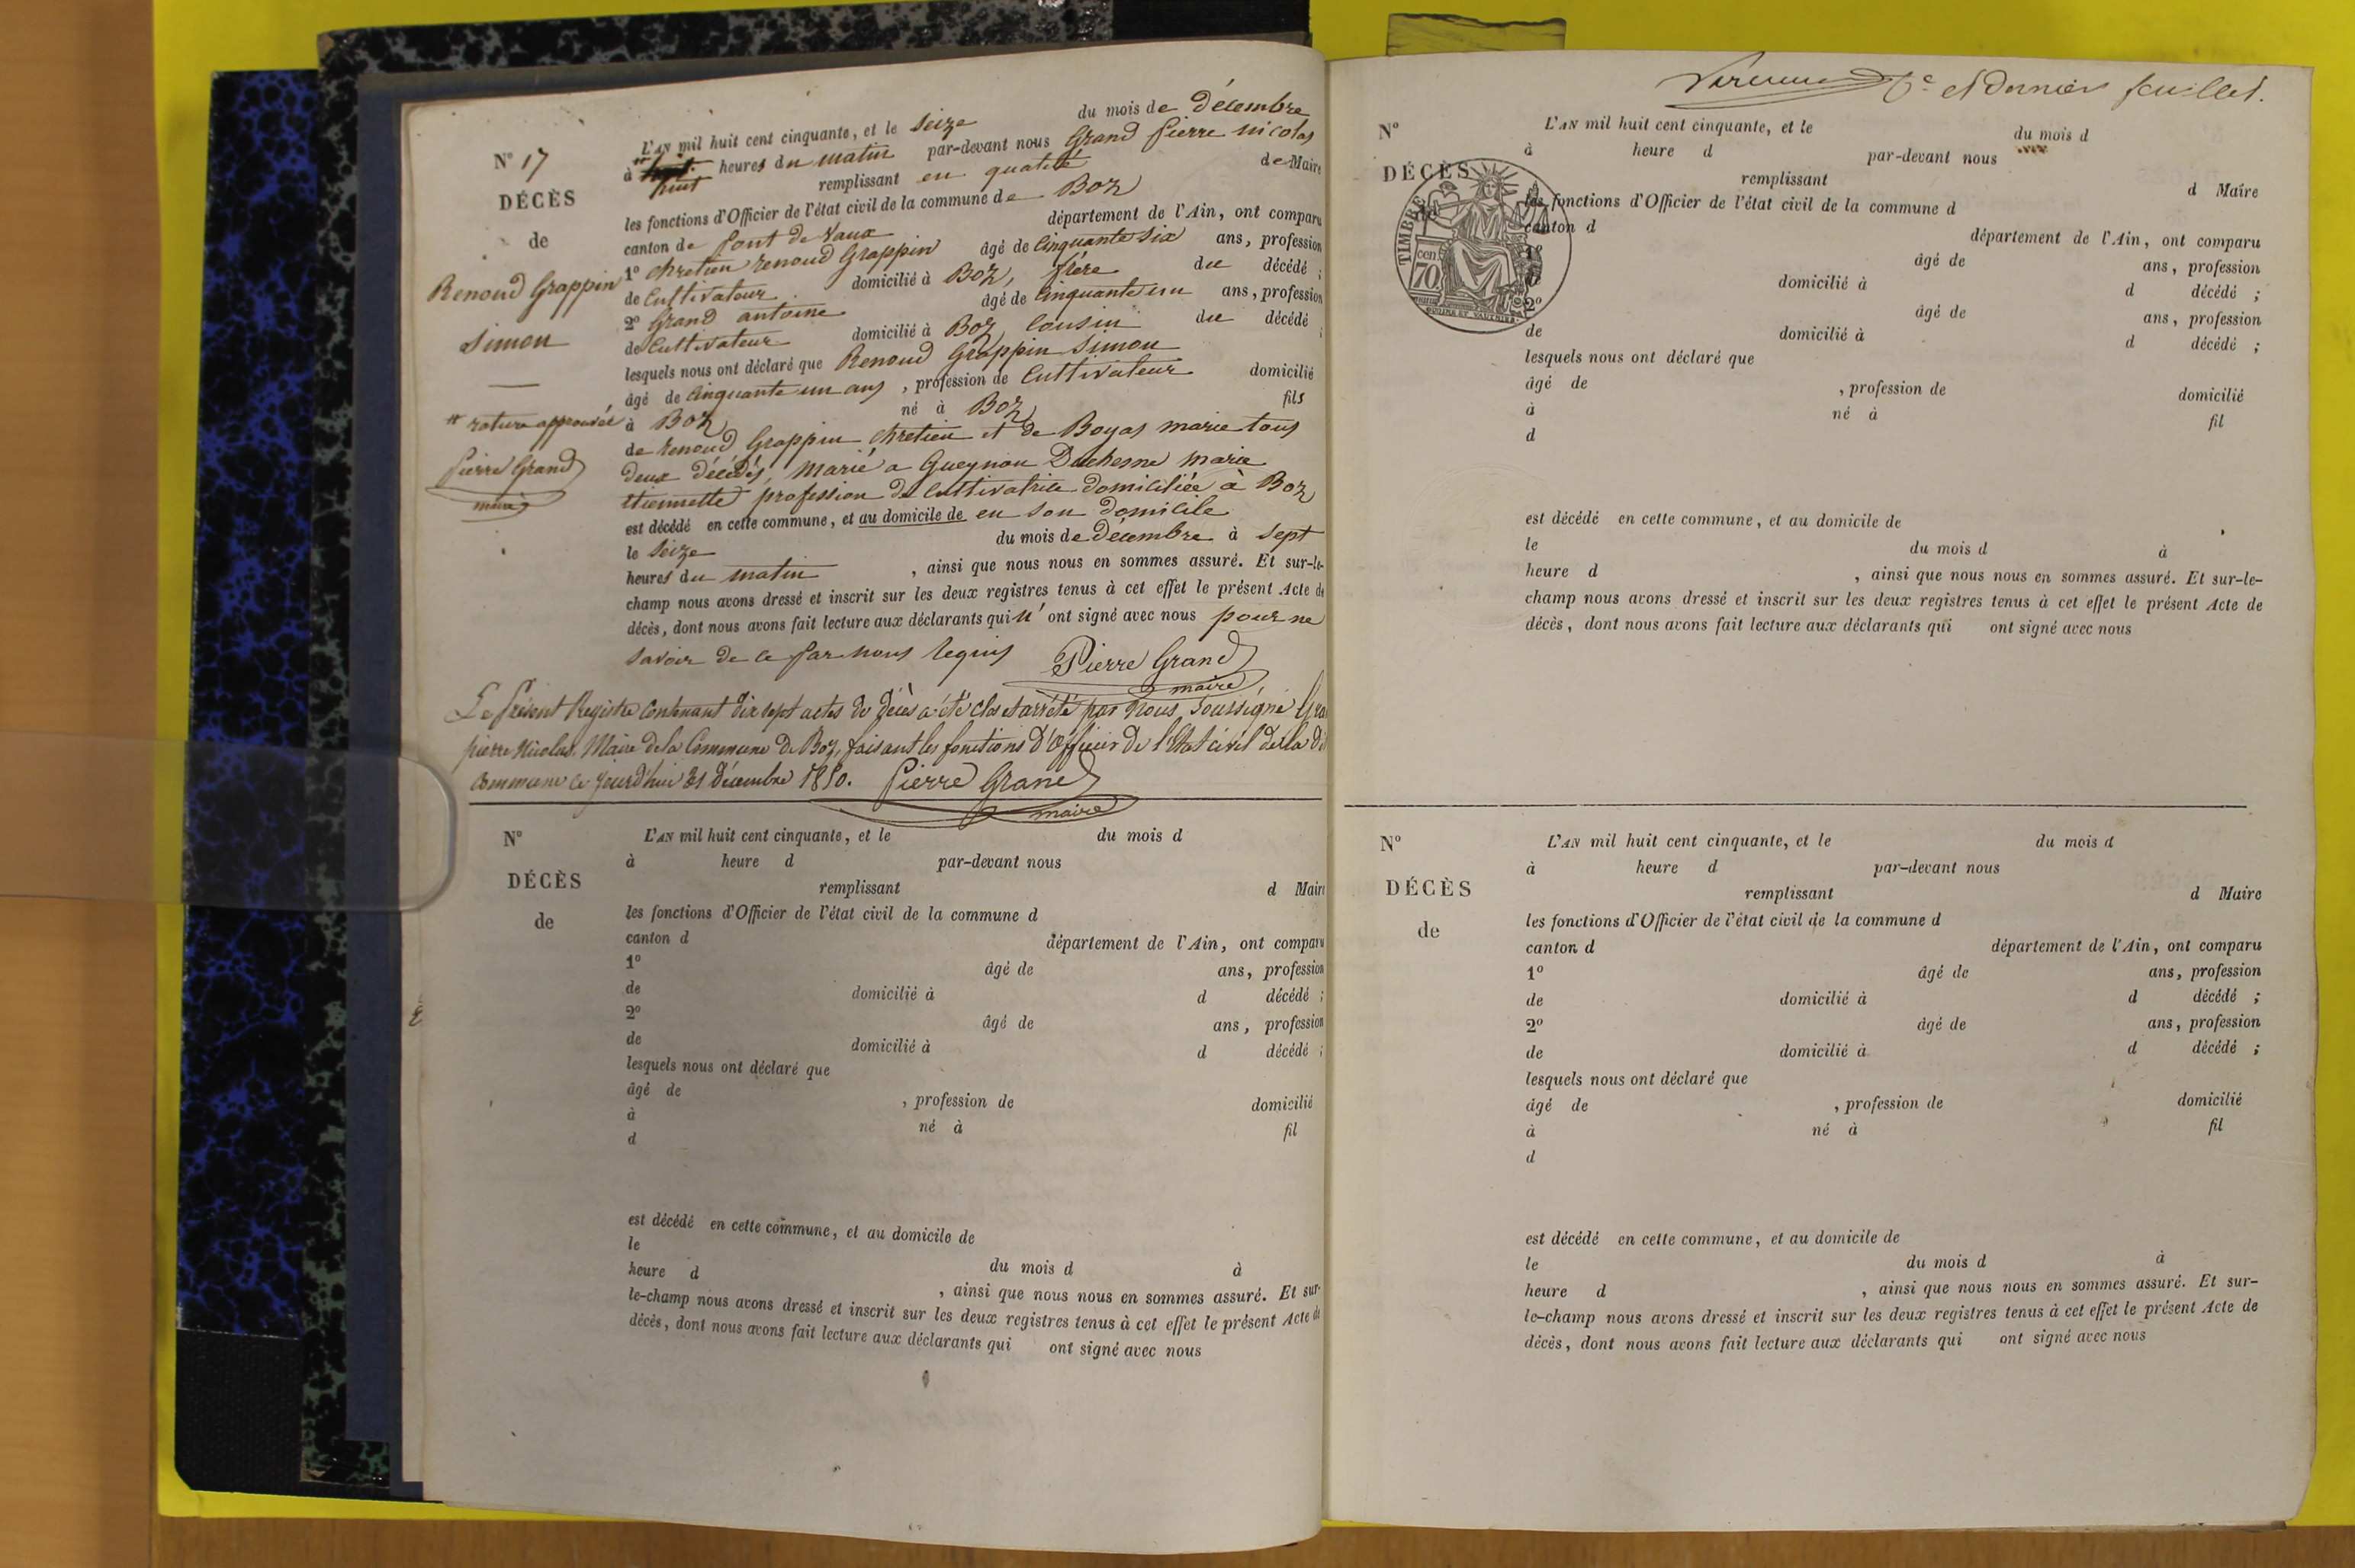 N° 17
DÉCÈS
de
Renoud Grappin
Simon
rature approuvée
Pierre Grand
maire
L'AN mil huit cent cinquante, et le seize du mois de décembre
à huit heures du matin par-devant nous Grand Pierre nicolas
remplissant en qualité de Maire
les fonctions d'Officier de l'état civil de la commune de Boz
canton de pont de vaux département de l'Ain, ont comparu
1° chretien renoud Grappin âgé de Cinquante six ans, profession
de Cultivateur domicilié à Boz, frère du décédé ;
2° Grand antoine âgé de Cinquante un ans, profession
de Cultivateur domicilié à Boz, Cousin du décédé ;
lesquels nous ont déclaré que Renoud Grappin Simon
âgé de Cinquante un ans, profession de Cultivateur domicilié
à Boz né à Boz fils
de renoud Grappin chretien et de Boyas marie tous
deux décédés, marié a Gueynon Duchesne marie
ttiennette profession de Cultivatrice domiciliée à Boz
est décédé en cette commune, et au domicile de en son domicile
le seize du mois de décembre à sept
heures du matin, ainsi que nous nous en sommes assuré. Et sur-le-
champ nous avons dressé et inscrit sur les deux registres tenus à cet effet le présent Acte de
décès, dont nous avons fait lecture aux déclarants qui n'ont signé avec nous pour ne
savoir de ce par nous requis Pierre Grand
maire
Le Présent Registre Contenant dix sept actes de décès a été clos et arrêté par nous soussigné Gra
pierre Nicolas, Maire de la Commune de Boz, faisant les fonctions d'Officier de l'Etat civil de la di
Commune ce jourd'hui 31 décembre 1850. Pierre Grand
maire
N°
DÉCÈS
de
L'AN mil huit cent cinquante, et le du mois d
à heure d par-devant nous
remplissant d Maire
les fonctions d'Officier de l'état civil de la commune d
canton d département de l'Ain, ont comparu
1° âgé de ans, profession
de domicilié à d décédé ;
2° âgé de ans, profession
de domicilié à d décédé ;
lesquels nous ont déclaré que
âgé de , profession de domicilié
à né à fil
d
est décédé en cette commune, et au domicile de
le du mois d à
heure d , ainsi que nous nous en sommes assuré. Et sur-
le-champ nous avons dressé et inscrit sur les deux registres tenus à cet effet le présent Acte de
décès, dont nous avons fait lecture aux déclarants qui ont signé avec nous
6e et dernier feuillet.
N°
DÉCÈS
TIMBRE
cen.
70
L'AN mil huit cent cinquante, et le du mois d
à heure d par-devant nous
remplissant d Maire
les fonctions d'Officier de l'état civil de la commune d
canton d département de l'Ain, ont comparu
1° âgé de ans, profession
de domicilié à d décédé ;
2° âgé de ans, profession
de domicilié à d décédé ;
lesquels nous ont déclaré que
âgé de , profession de domicilié
à né à fil
d
est décédé en cette commune, et au domicile de
le du mois d à
heure d , ainsi que nous nous en sommes assuré. Et sur-le-
champ nous avons dressé et inscrit sur les deux registres tenus à cet effet le présent Acte de
décès, dont nous avons fait lecture aux déclarants qui ont signé avec nous
N°
DÉCÈS
de
L'AN mil huit cent cinquante, et le du mois d
à heure d par-devant nous
remplissant d Maire
les fonctions d'Officier de l'état civil de la commune d
canton d département de l'Ain, ont comparu
1° âgé de ans, profession
de domicilié à d décédé ;
2° âgé de ans, profession
de domicilié à d décédé ;
lesquels nous ont déclaré que
âgé de , profession de domicilié
à né à fil
d
est décédé en cette commune, et au domicile de
le du mois d à
heure d , ainsi que nous nous en sommes assuré. Et sur-
le-champ nous avons dressé et inscrit sur les deux registres tenus à cet effet le présent Acte de
décès, dont nous avons fait lecture aux déclarants qui ont signé avec nous